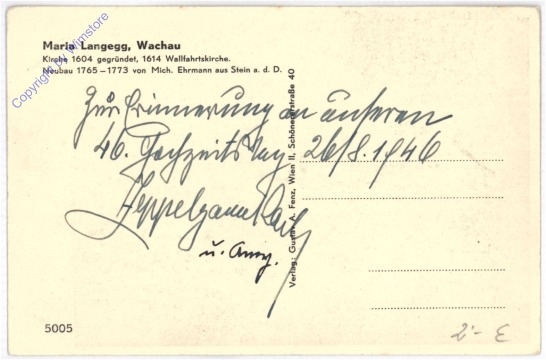 Maria Langegg, Wachau
Kirche 1604 gegründet, 1614 Wallfahrtskirche.
Neubau 1765–1773 von Mich. Ehrmann aus Stein a. d. D.
Copyright by Wimstore
Zur Erinnerung an unseren
46. Hochzeitstag 26/8.1946
u.
Verlag: Gustav A. Fenz, Wien II, Schönererstraße 40
5005
2.- E